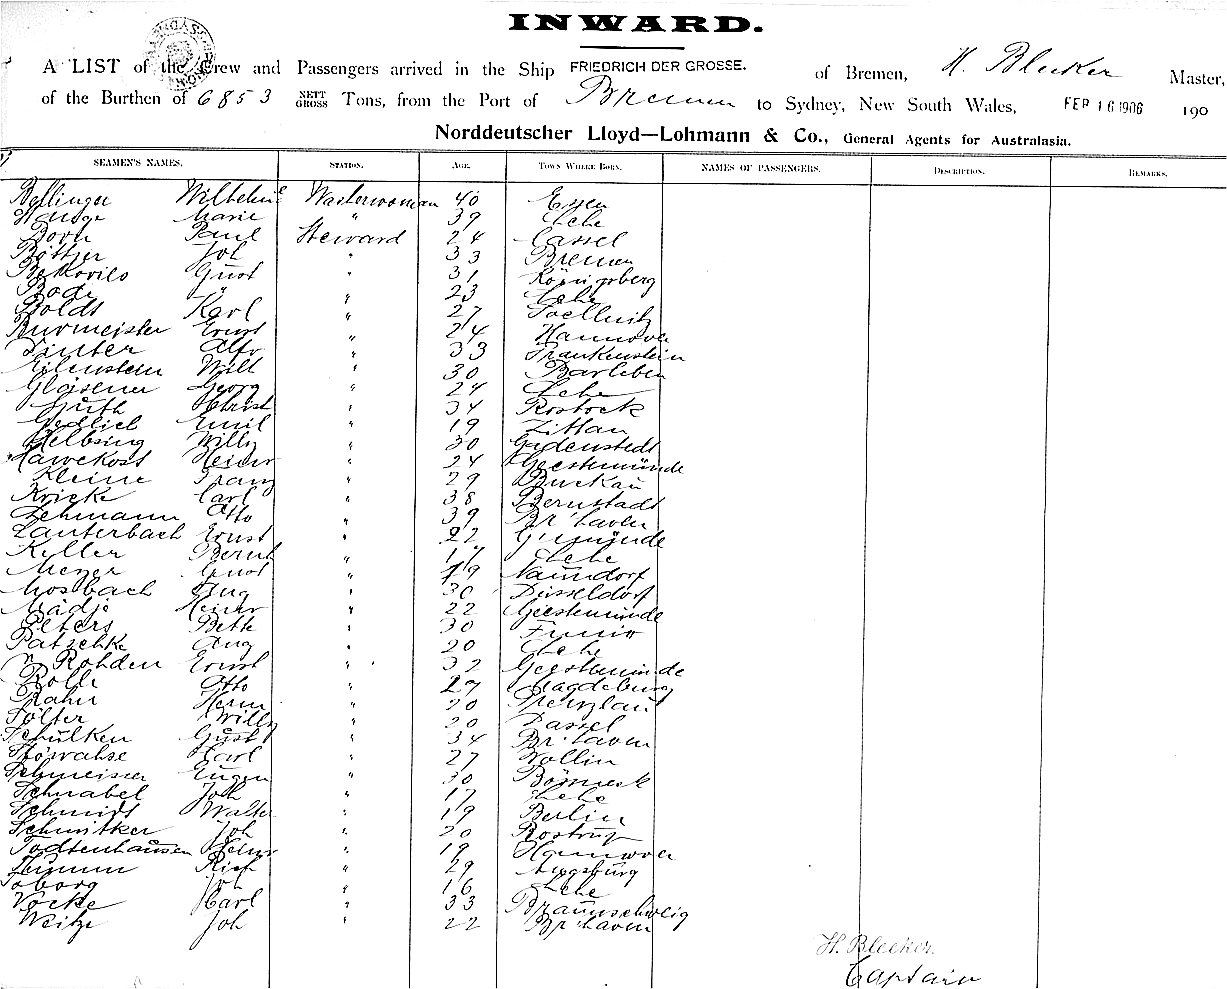 INWARD.
A LIST of the Crew and Passengers arrived in the Ship FRIEDRICH DER GROSSE. of Bremen, H. Bleeker Master,
of the Burthen of 6853 NETT GROSS Tons, from the Port of Bremen to Sydney, New South Wales, FEB 16 1906 190
Norddeutscher Lloyd—Lohmann & Co., General Agents for Australasia.
SEAMEN'S NAMES. STATION. AGE. TOWN WHERE BORN. NAMES OF PASSENGERS. DESCRIPTION. REMARKS.
Bellinger Wilhelm Washerwoman 40 Essen
Marie " 39 Lehe
Born Paul Steward 24 Cassel
Böttjer Joh " 33 Bremen
Gust " 31 Königsberg
Bode " " 23 Lehe
Boldt Karl " 27
Burmeister Ernst " 24 Hannover
Otto " 33 Frankenstein
Eilenstein Will " 30 Barleben
Gläsener Georg " 24 Lehe
Guth Christ " 34 Rostock
Emil " 19 Zittau
Helbsing Willy " 30 Gadenstedt
Hawekost Heinr " 24 Geestemünde
Kleine Franz " 29 Buckau
Kricke Carl " 38 Bernstadt
Lehmann Otto " 39 Br'haven
Lauterbach Ernst " 22 Gmünde
Keller Bernh " 17 Lehe
Meyer Gust " 19 Naundorf
Mosbach Aug " 30 Düsseldorf
Mädje Heinr " 22 Geestemünde
Peters " 30
Patschke Aug " 20 Lehe
v Rohden Ernst " 32 Geestemünde
Otto " 27 Magdeburg
Rahn Herm " 20 Prenzlau
Sölter Willy " 20 Dassel
Schülken Gust " 34 Br'haven
Karl " 27 Wollin
Schmeisser Eugen " 30
Schnabel Joh " 17 Lehe
Schmidt Walter " 19 Berlin
Schnitker Joh " 20 Rostrup
Todtenhausen Heinr " 19 Hannover
" 29 Augsburg
Joh " 16 Lehe
Vocke Karl " 33 Braunschweig
Weitze Joh " 22 Br'haven
H. Bleeker.
Captain